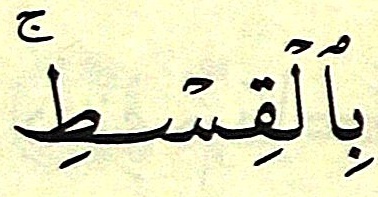 بِٱلۡقِسۡطِۚ